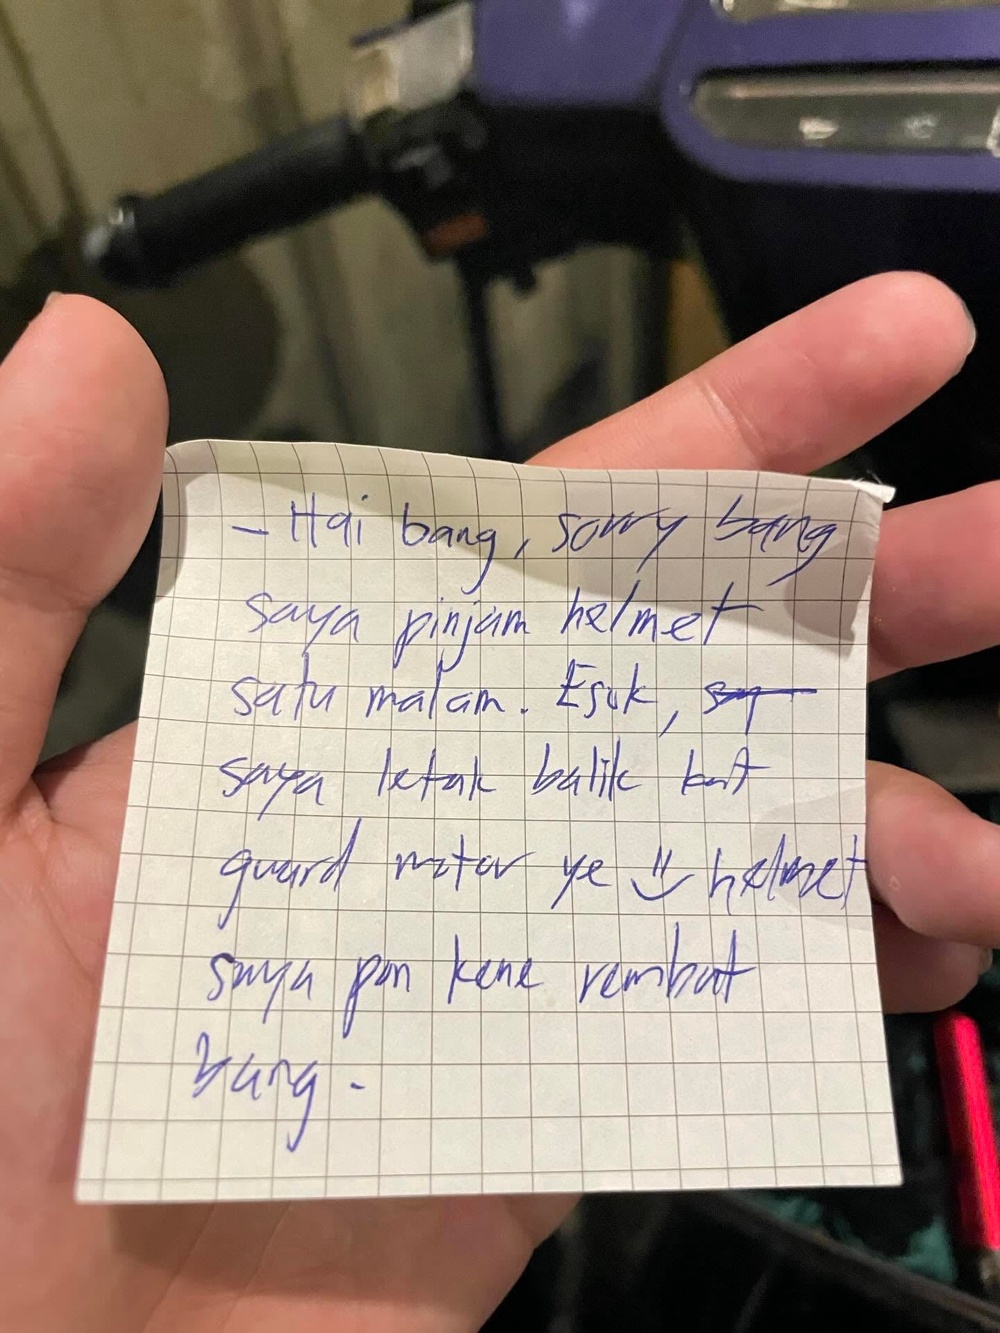 - Hai bang, sorry bang
saya pinjam helmet
satu malam. Esok,
saya letak balik kat
guard motor ye helmet
saya pon kene rembat
bang.